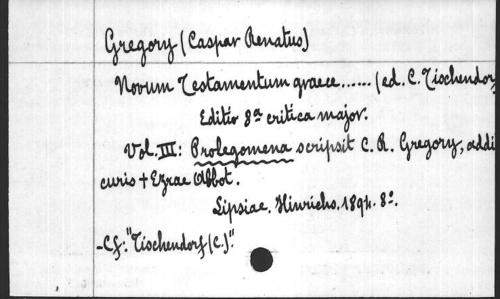 Gregory (Caspar Renatus)
Novum Testamentum graece...... (ed. C. Tischendor
Editio 8ª critica major.
Vol. III: Prolegomena scripsit C. R. Gregory, addi
curis + Ezrae Abbot.
Lipsiae. Hinrichs. 1894. 8º.
-Cf: "Tischendorf (C.)".